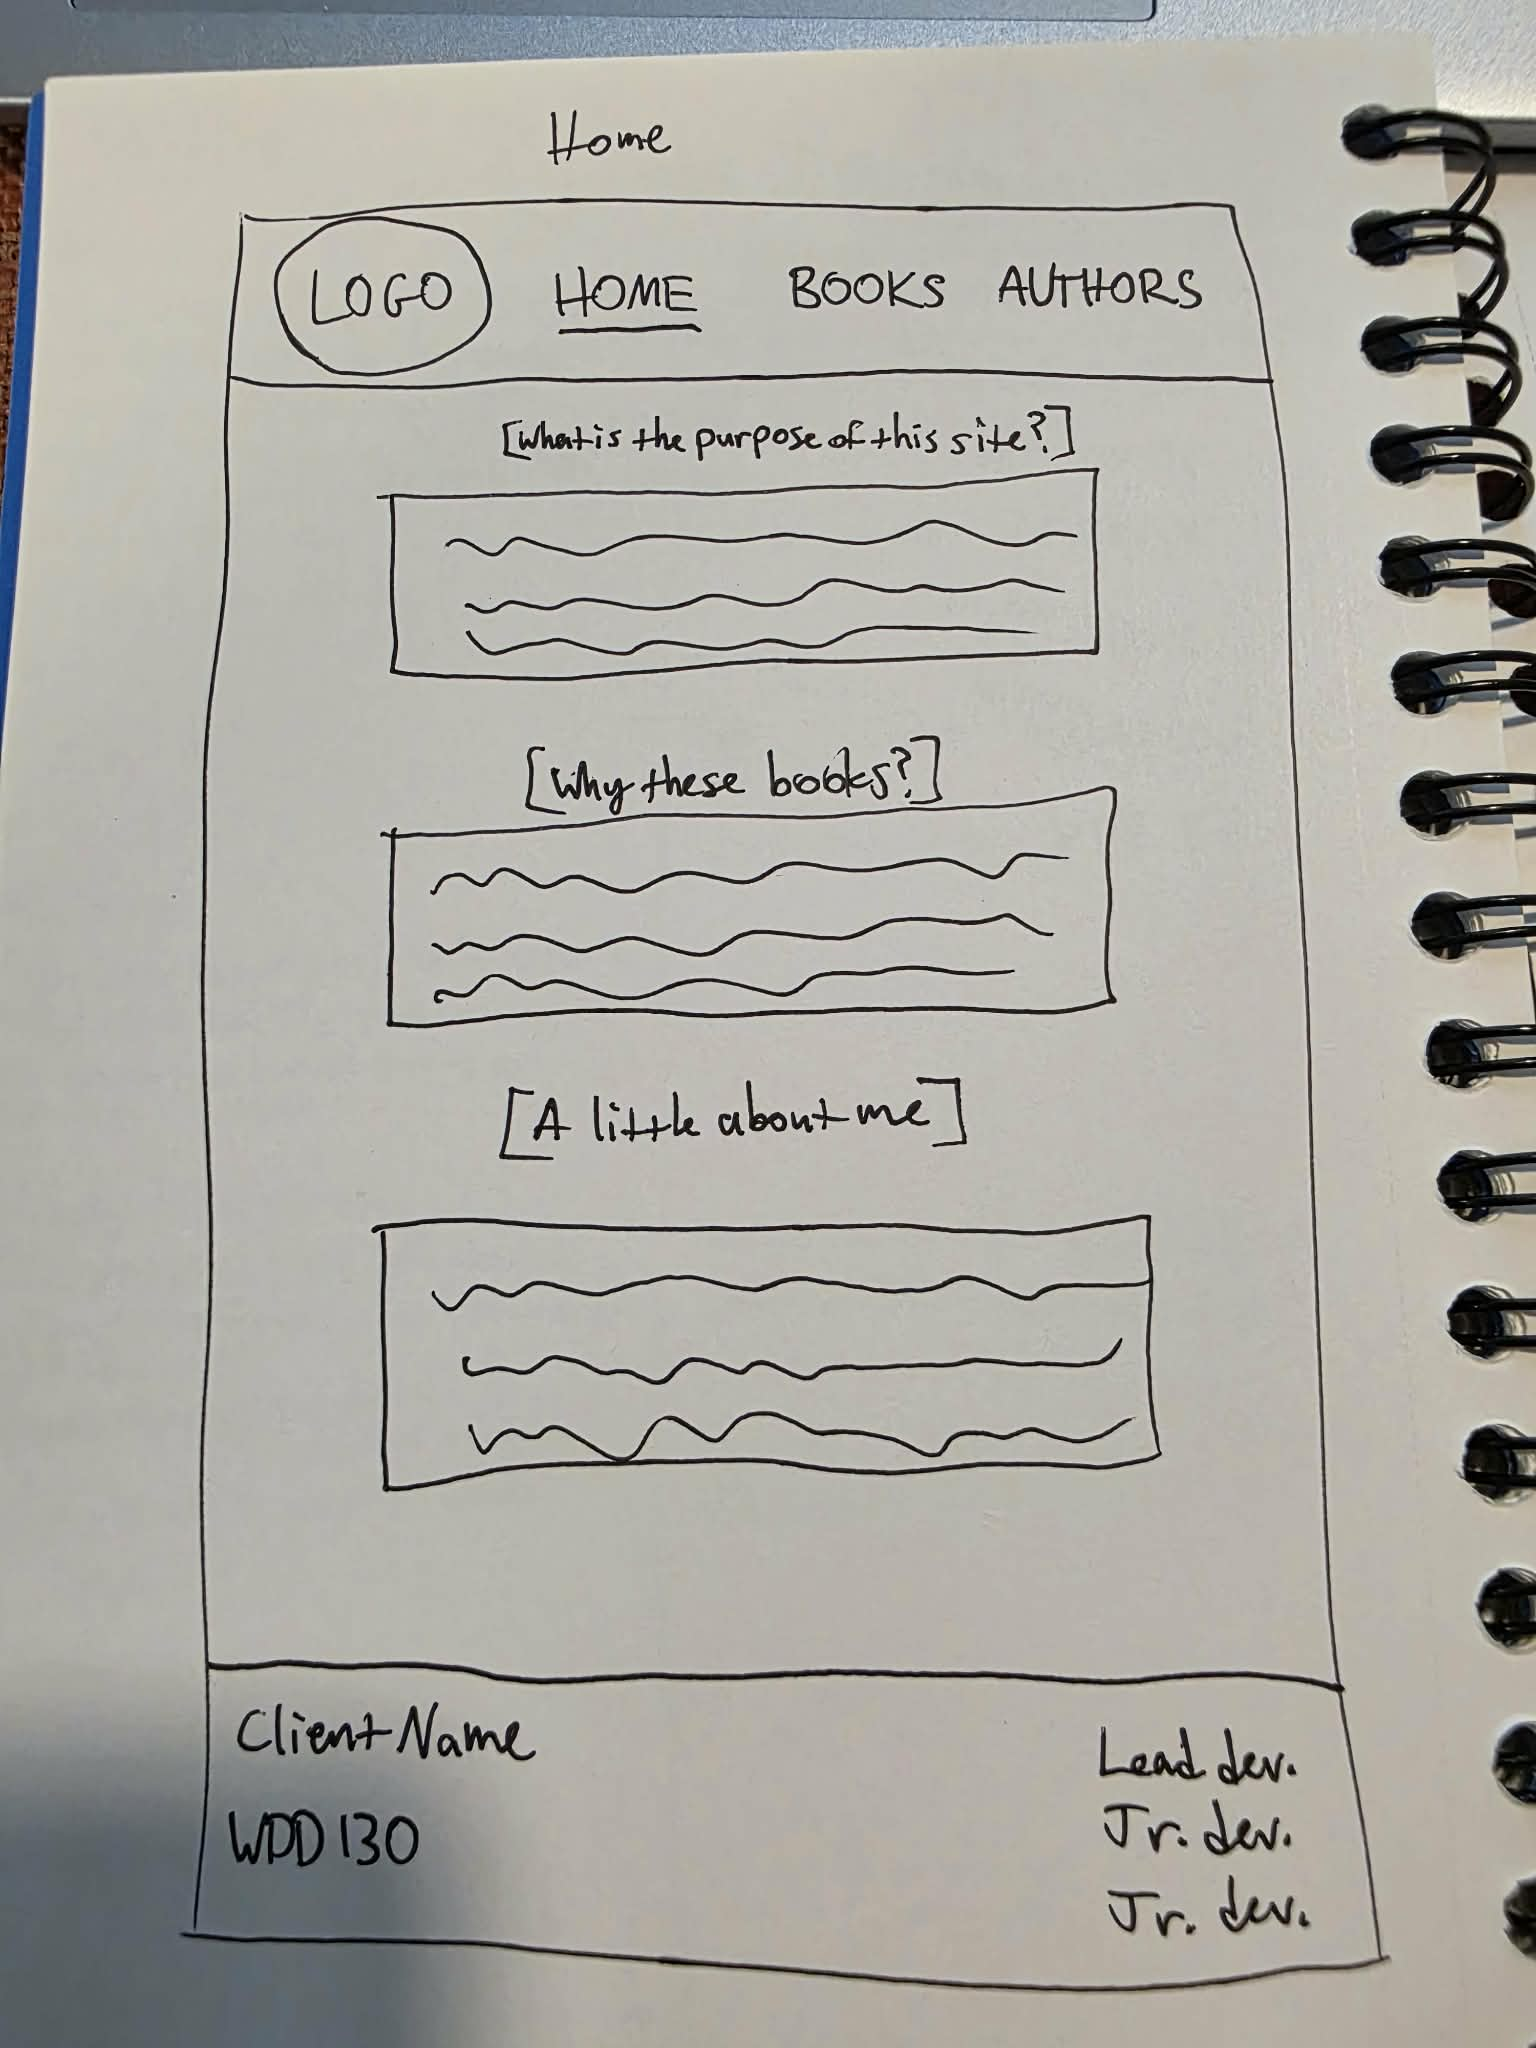 Home
LOGO HOME BOOKS AUTHORS
[What is the purpose of this site?]
[Why these books?]
[A little about me]
Client Name
WDD 130
Lead dev.
Jr. dev.
Jr. dev.